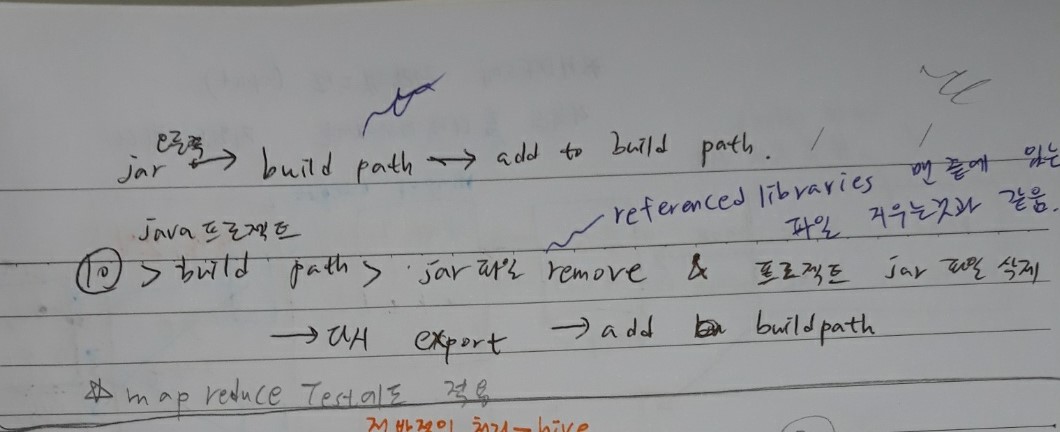 jar 오른쪽 → build path → add to build path.
referenced libraries 맨 끝에 있는
파일 지우는것과 같음.
java 프로젝트
> build path > jar 파일 remove & 프로젝트 jar 파일 삭제
→ 다시 export → add buildpath
☆ map reduce Test에도 적용